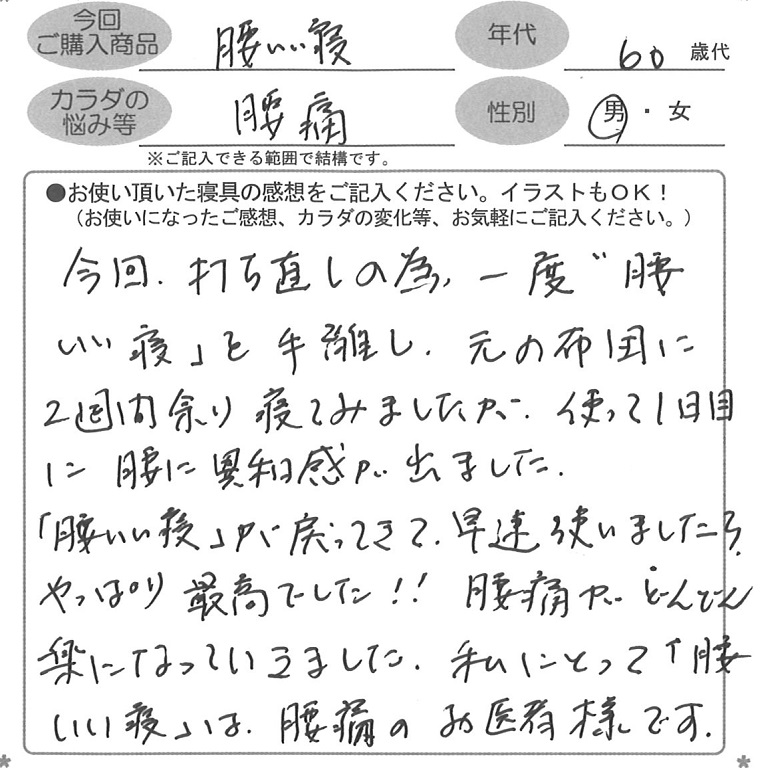 今回
ご購入商品
腰いい寝
年代
60 歳代
カラダの
悩み等
腰痛
性別
男・女
※ご記入できる範囲で結構です。
●お使い頂いた寝具の感想をご記入ください。イラストもOK！
（お使いになったご感想、カラダの変化等、お気軽にご記入ください。）
今回、打ち直しの為、一度"腰
いい寝」を手離し、元の布団に
2週間余り寝てみましたが、使って1日目
に腰に異和感が出ました。
「腰いい寝」が戻ってきて、早速使いましたら、
やっぱり最高でした!! 腰痛がどんどん
楽になっていきました。私にとって「腰
いい寝」は、腰痛のお医者様です。